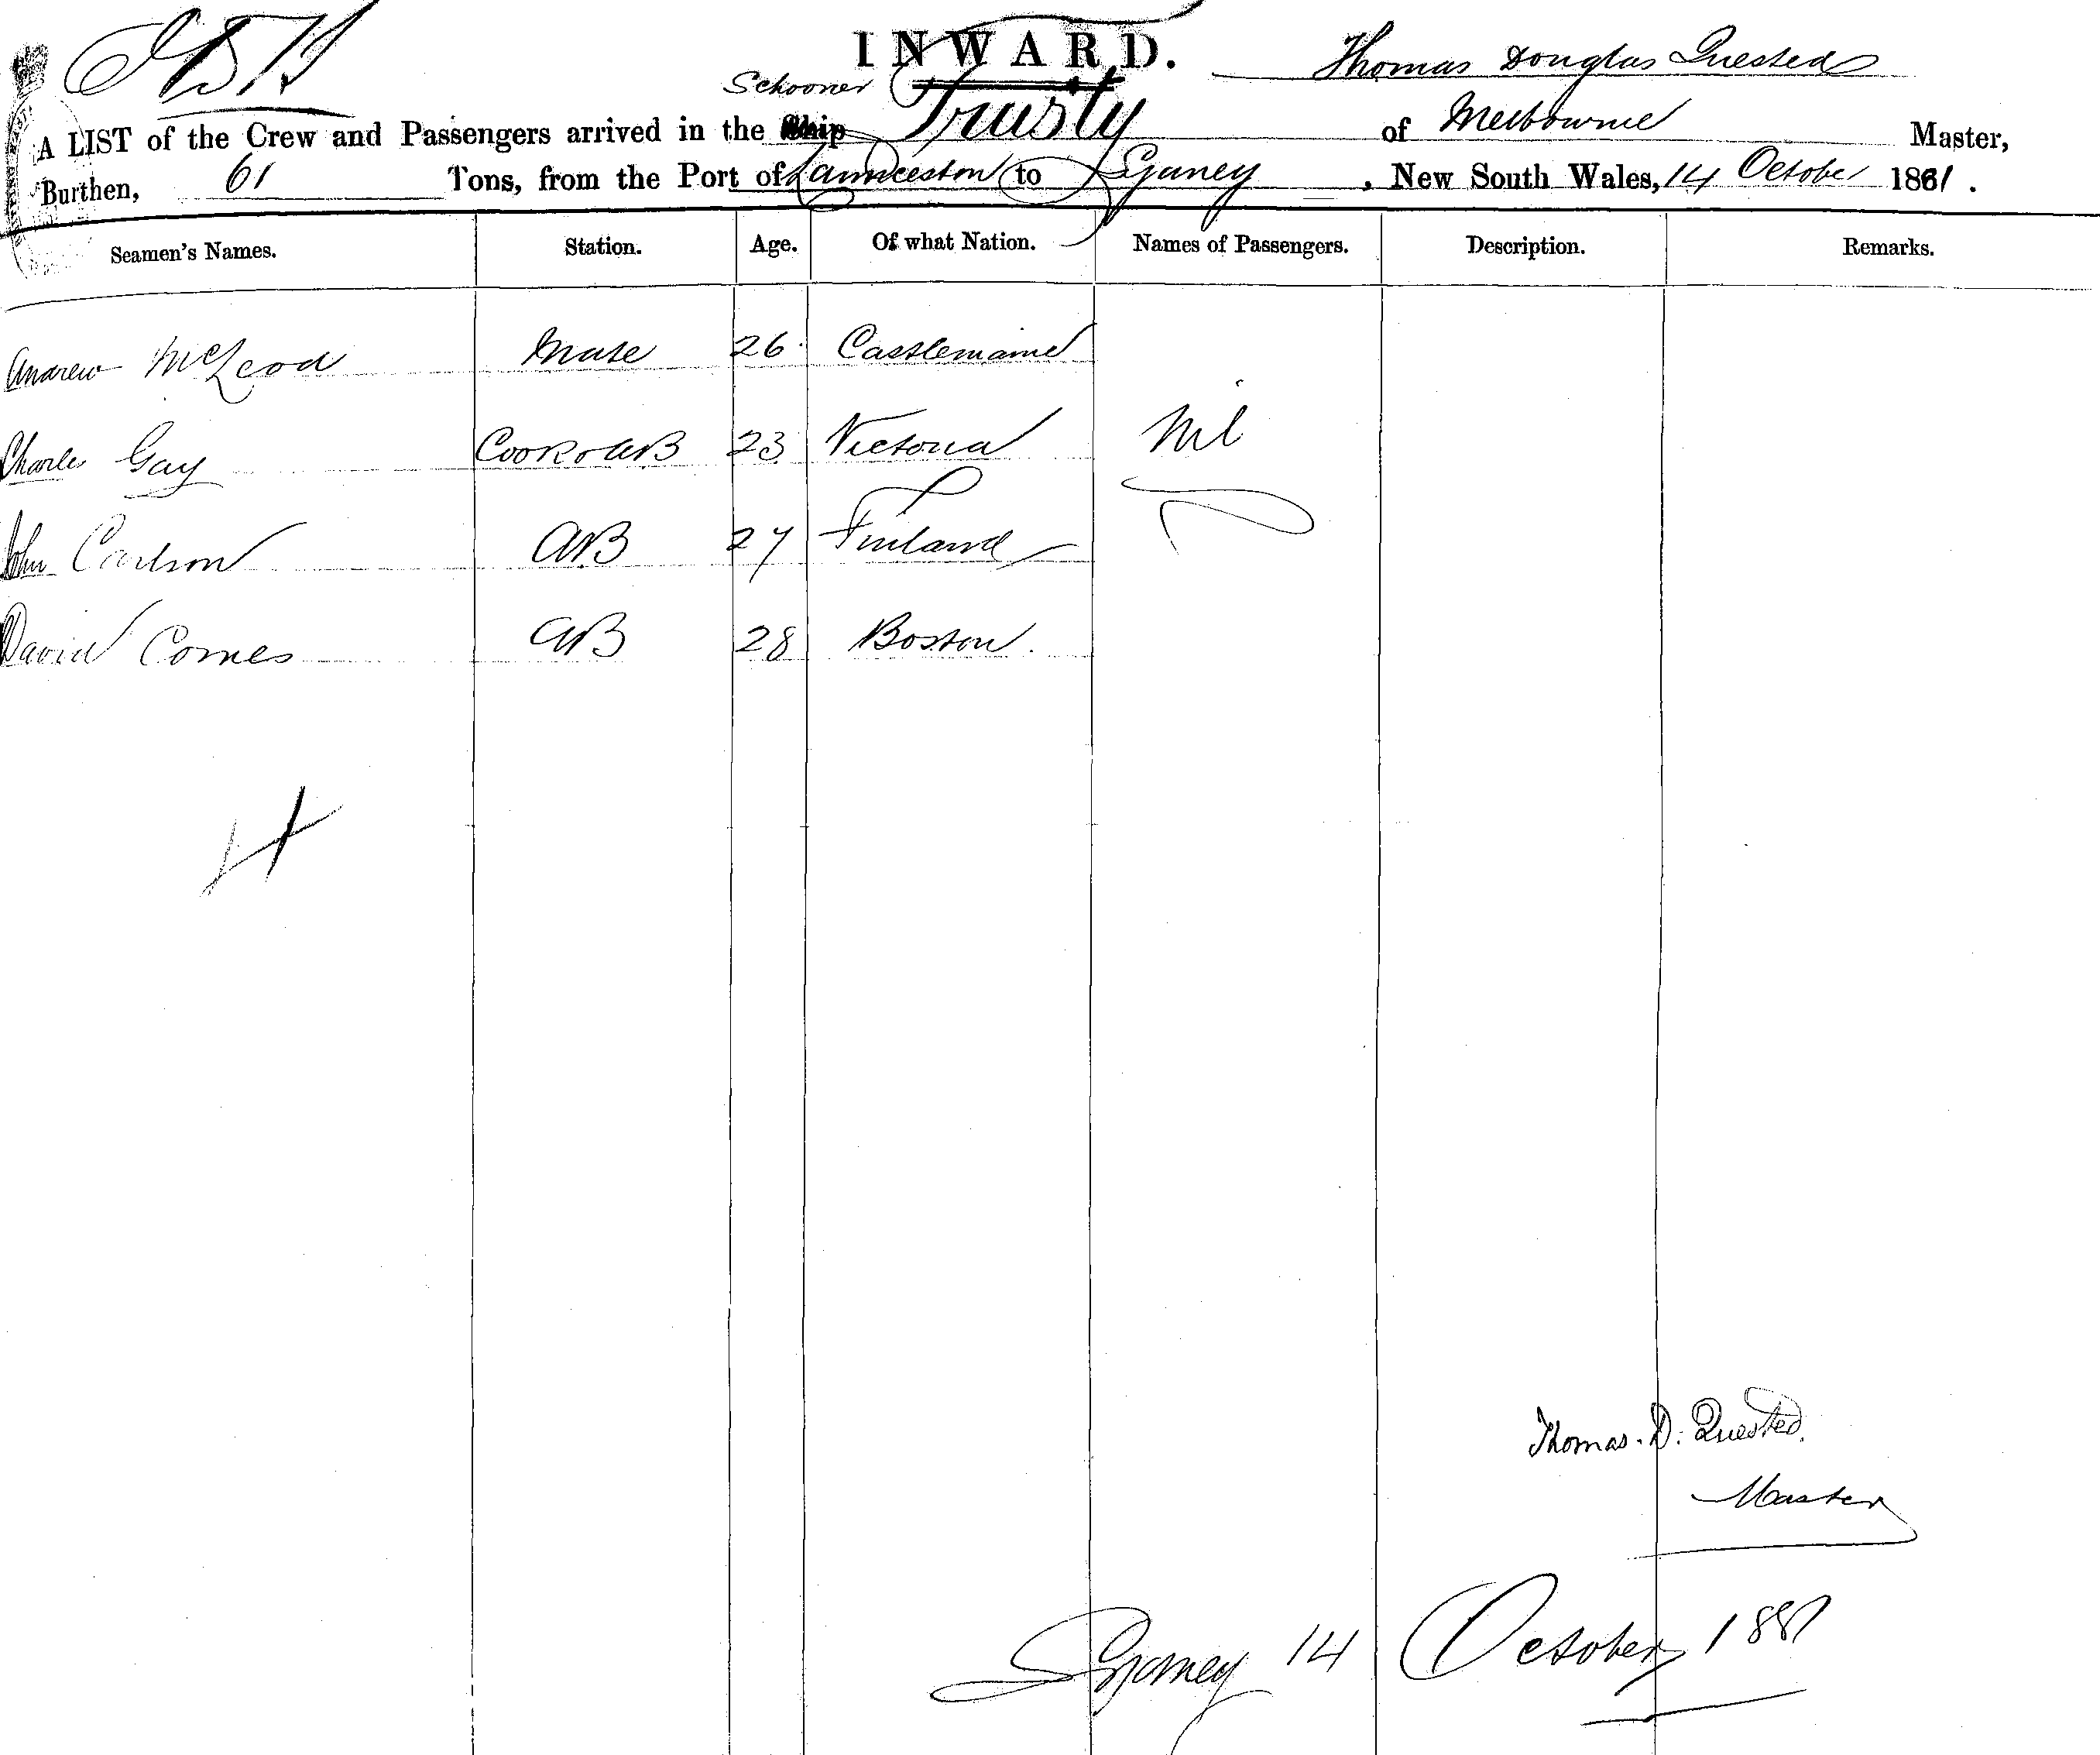 INWARD.
Thomas Douglas Quested
Schooner
A LIST of the Crew and Passengers arrived in the Ship Trusty of Melbourne Master,
Burthen, 61 Tons, from the Port of Launceston to Sydney, New South Wales, 14 October 1881.
Seamen's Names. Station. Age. Of what Nation. Names of Passengers. Description. Remarks.
Andrew McLeod Mate 26 Castlemaine
Charles Gay Cook & AB 23 Victoria Nil
John Carlson AB 27 Finland
David Comes AB 28 Boston.
4
Thomas. D. Quested.
Master
Sydney 14 October 1881